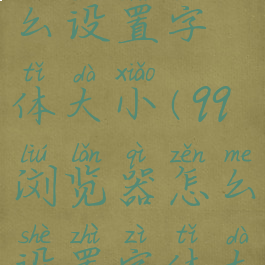 么设置字
tǐ dà xiǎo
体大小(99
liú lǎn qì zěn me
浏览器怎么
shè zhì zì tǐ dà
设置字体大